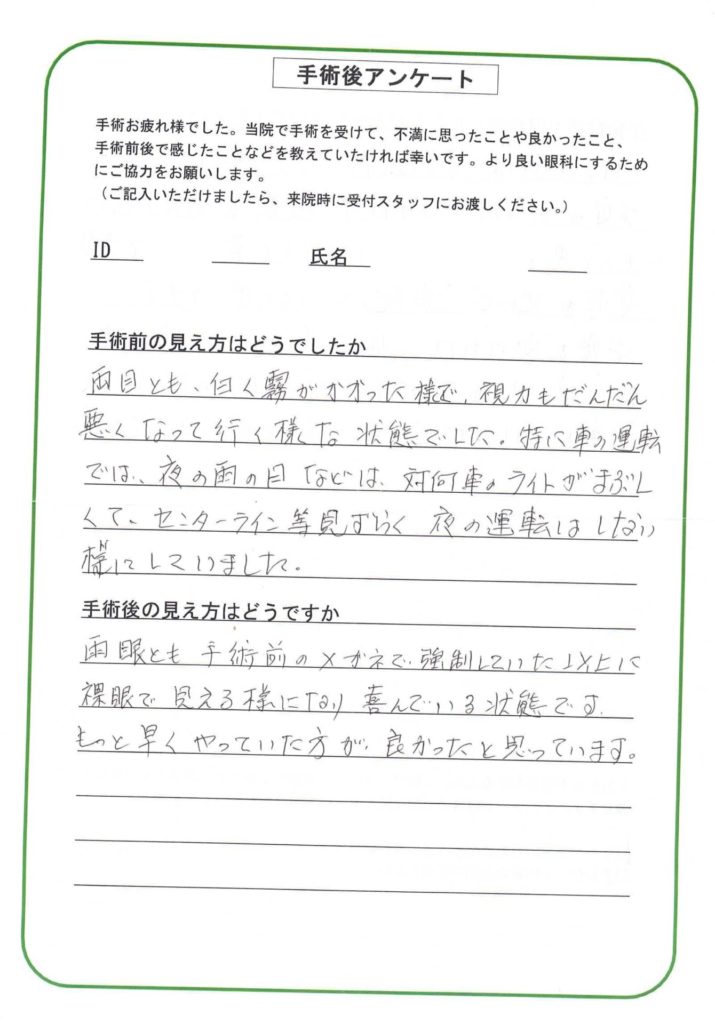 手術後アンケート
手術お疲れ様でした。当院で手術を受けて、不満に思ったことや良かったこと、
手術前後で感じたことなどを教えていたければ幸いです。より良い眼科にするため
にご協力をお願いします。
（ご記入いただけましたら、来院時に受付スタッフにお渡しください。）
ID 氏名
手術前の見え方はどうでしたか
両目とも、白く霧がかかった様で、視力もだんだん
悪くなって行く様な状態でした。特に車の運転
では、夜の雨の日などは、対向車のライトがまぶし
くて、センターライン等見ずらく夜の運転はしない
様にしていました。
手術後の見え方はどうですか
両眼とも手術前のメガネで強制していた以上に
裸眼で見える様になり喜んでいる状態です.
もっと早くやっていた方が、良かったと思っています。